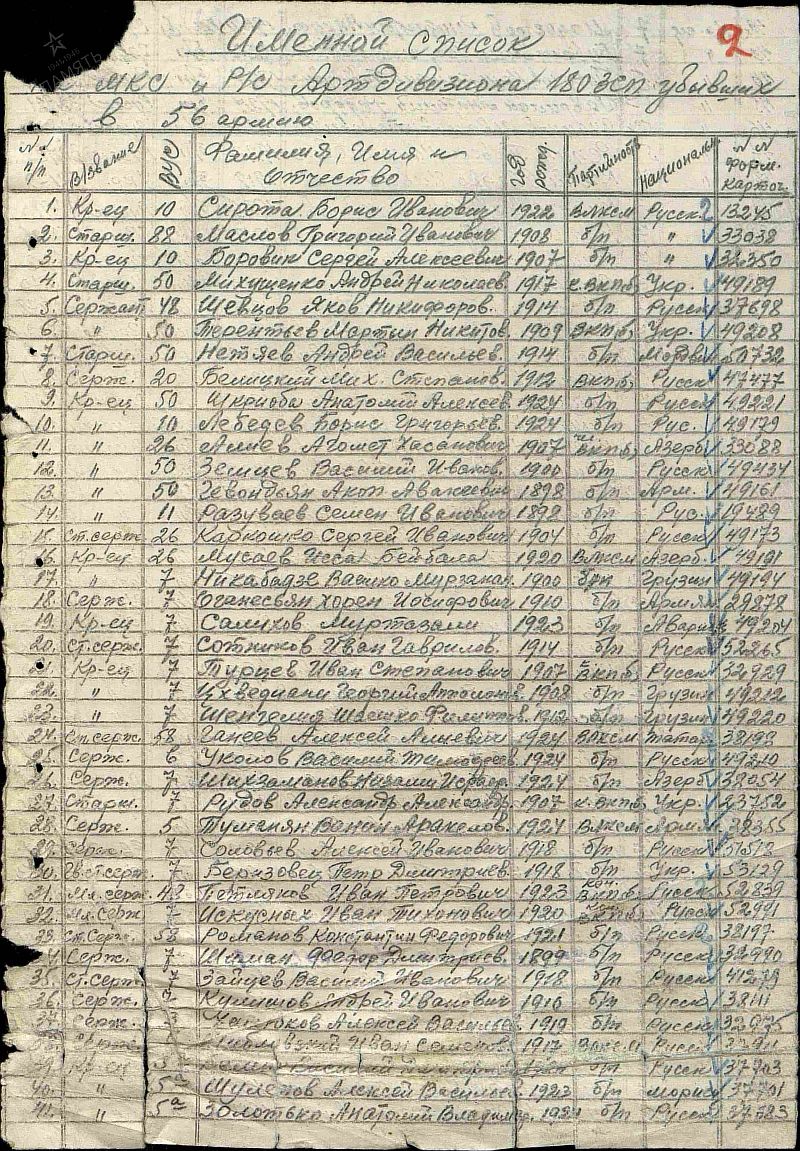 2
ПАМЯТЬ
Именной список
МКС и Р/С Артдивизиона 180 ЗСП убывших
в 56 армию
№№ п/п В/звание ВУС Фамилия, Имя и отчество Год рожд. Партийность Националь №№ форм. карточ.
1. Кр-ец 10 Сирота Борис Иванович 1922 ВЛКСМ Русск. 13245
2. Старш. 88 Маслов Григорий Иванович 1908 б/п " 33038
3. Кр-ец 10 Боровик Сергей Алексеевич 1907 б/п " 32350
4. Старш. 50 Михущенко Андрей Николаев. 1917 к.ВКПб Укр. 49189
5. Сержант 48 Шевцов Яков Никифоров. 1914 б/п Русск 37698
6. " 50 Терентьев Мартын Никитов. 1909 ВКПб Укр. 49208
7. Старш. 50 Нетяев Андрей Васильев. 1914 б/п Мордви 50732
8. Серж. 20 Белицкий Мих. Степанов. 1912 ВКПб Русск 47477
9. Кр-ец 50 Шкриоба Анатолий Алексеев. 1924 б/п Русск 49221
10. " 10 Лебедев Борис Григорьев. 1924 б/п Рус. 49179
11. " 26 Алиев Агомет Хасанович 1907 ВКПб Азерб 33088
12. " 50 Земцев Василий Иванов. 1900 б/п Русск 49434
13. " 50 Гевондьян Акоп Авакеевич 1898 б/п Арм. 49161
14. " 11 Разуваев Семен Иванович 1892 б/п Рус. 19489
15. ст.серж. 26 Каркошко Сергей Иванович 1904 б/п Русск 49173
16. Кр-ец 26 Мусаев Исса Бейбала 1920 ВЛКСМ Азерб. 49191
17. " 7 Никабадзе Васико Мирзакан. 1900 б/п Грузин 49194
18. Серж. 7 Оганесьян Хорен Иосифович 1910 б/п Армян. 29878
19. Кр-ец 7 Салихов Миртазали 1923 б/п Авариц 49204
20. ст.серж. 7 Сотников Иван Гаврилов. 1914 б/п Русск 52265
21. Кр-ец 7 Турцев Иван Степанович 1907 ВКПб Русск 32929
22. " 7 Цхведиани Георгий 1908 б/п Грузин 49212
23. " 7 Шенгелия 1912 б/п Грузин 49220
24. ст.серж. 58 Ганеев Алексей Алиевич 1924 ВЛКСМ Татар 38193
25. Серж. 6 Уколов Василий Тимофеев. 1924 б/п Русск 49210
26. Серж. 7 Шихзаманов Низами 1924 б/п Азерб 32054
27. Старш. 7 Рудов Александр Александр. 1907 к.ВКПб Укр. 23752
28. Серж. 5 Туманян Ванин Аракелов. 1924 ВЛКСМ Армян. 38355
29. Серж. 7 Соловьев Алексей Иванович 1918 б/п Русск
30. Гв.ст.серж. 7 Березовец Петр Дмитриев. 1918 б/п Укр. 53129
31. Мл.серж. 48 Петляков Иван Петрович 1923 Кан. ВКПб Русск 52839
32. Мл.серж 7 Искусных Иван Тихонович 1920 ВКПб Русск 52991
33. ст.Серж. 58 Романов Константин Федорович 1921 б/п Русск 38197
Серж. 7 Шиман Федор Дмитриев. 1899 б/п Русск 32990
35. Ст.серж 7 Зайцев Василий Иванович 1918 б/п Русск 41279
36. Серж. 7 Иванович 1910 б/п Русск 38111
37. Серж. Алексей Васильев 1919 б/п Русск 32975
Иван Семенов. 1917 ВЛКСМ Русск
39. Кр-ец б/п Русск 37703
40. " 5а Шулепов Алексей Васильев. 1923 б/п 37701
41. " 5а Золотько Анатолий Владимир. 1924 б/п Русск 37583